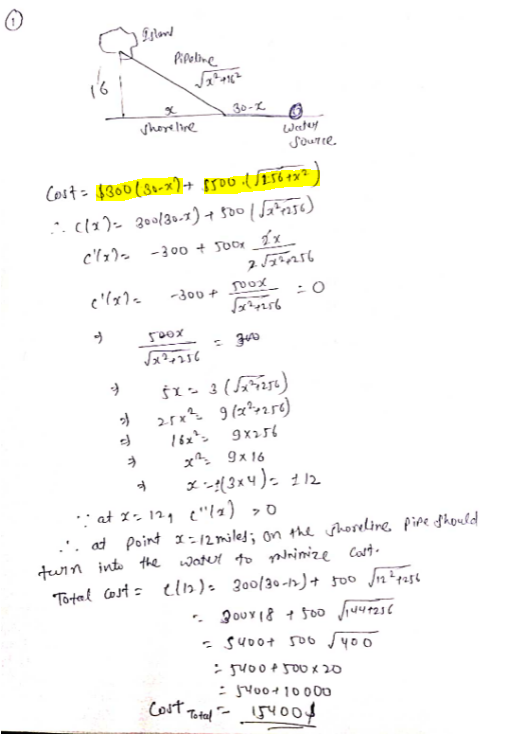 ①
Island
Pipeline
√x²+16²
16
x
30-x
Shoreline
Water
Source
Cost = $300(30-x) + $500·(√256+x²)
∴ C(x) = 300(30-x) + 500(√x²+256)
C'(x) = -300 + 500x 2x / 2√x²+256
C'(x) = -300 + 500x / √x²+256 = 0
⇒ 500x / √x²+256 = 300
⇒ 5x = 3(√x²+256)
⇒ 25x² = 9(x²+256)
⇒ 16x² = 9x256
⇒ x² = 9x16
⇒ x = ±(3x4) = ±12
∵ at x = 12, C"(x) >0
∴ at point x=12 miles; on the shoreline pipe should
turn into the water to minimize cost.
Total cost = C(12) = 300(30-12) + 500 √12²+256
= 300x18 + 500 √144+256
= 5400+ 500 √400
= 5400+500x20
= 5400+10000
Cost Total = 15400$